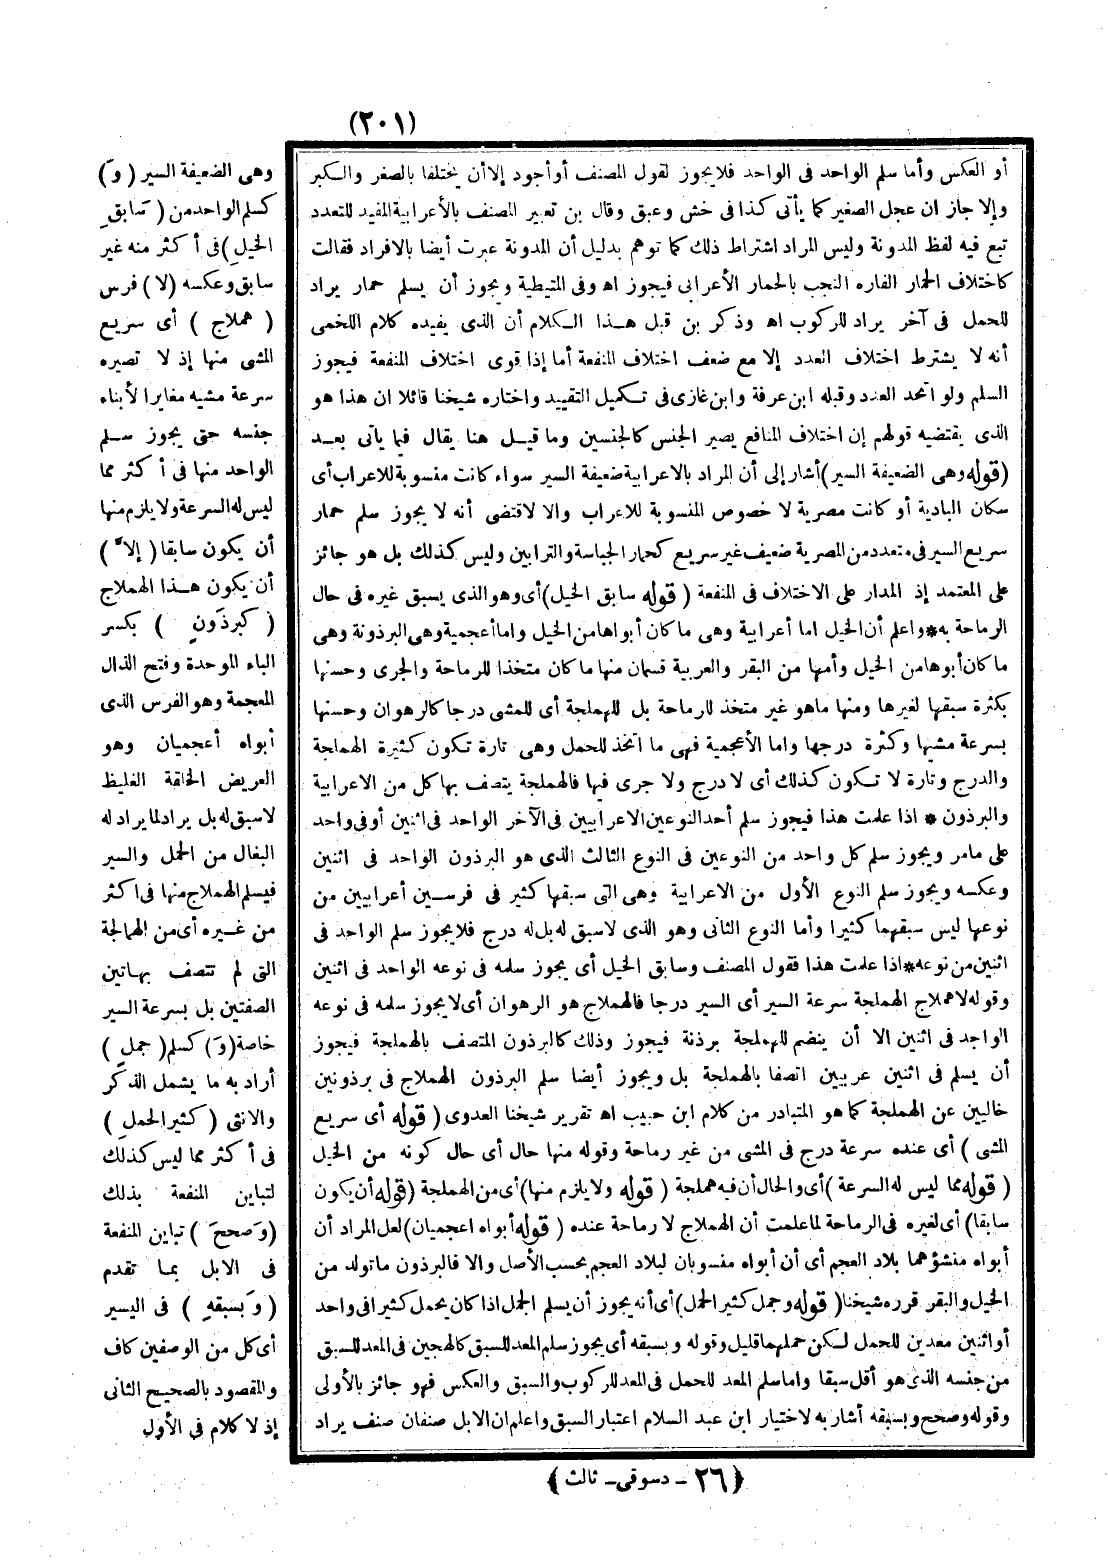 (٢٠١)
أو العكس وأما سلم الواحد فى الواحد فلا يجوز لقول المصنف أو أجود إلا أن يختلفا بالصغر والكبر
وإلا جاز ان عجل الصغير كما يأتى كذا فى خش وعبق وقال بن تعبير المصنف بالأعرابية المفيد للتعدد
تبع فيه لفظ المدونة وليس المراد اشتراط ذلك كما توهم بدليل أن المدونة عبرت أيضا بالافراد فقالت
كاختلاف الحمار الفاره النجب بالحمار الأعرابى فيجوز اه وفى المتيطية ويجوز أن يسلم حمار يراد
للحمل فى آخر يراد للركوب اه وذكر بن قبل هذا الكلام أن الذى يفيده كلام اللخمى
أنه لا يشترط اختلاف العدد إلا مع ضعف اختلاف المنفعة أما إذا قوى اختلاف المنفعة فيجوز
السلم ولو اتحد العدد وقبله ابن عرفة وابن غازى فى تكميل التقييد واختاره شيخنا قائلا ان هذا هو
الذى يقتضيه قولهم إن اختلاف المنافع يصير الجنس كالجنسين وما قيل هنا يقال فيما يأتى بعد
(قوله وهى الضعيفة السير) أشار إلى أن المراد بالاعرابية ضعيفة السير سواء كانت منسوبة للاعراب أى
سكان البادية أو كانت مصرية لا خصوص المنسوبة للاعراب والا لاقتضى أنه لا يجوز سلم حمار
سريع السير فى متعدد من المصرية ضعيف غير سريع كحمار الجباسة والترابين وليس كذلك بل هو جائز
على المعتمد إذ المدار على الاختلاف فى المنفعة (قوله سابق الخيل) أى وهو الذى يسبق غيره فى حال
الرماحة به * واعلم أن الخيل اما أعرابية وهى ما كان أبواها من الخيل واما أعجمية وهى البرذونة وهى
ما كان أبوها من الخيل وأمها من البقر والعربية قسمان منها ما كان متخذا للرماحة والجرى وحسنها
بكثرة سبقها لغيرها ومنها ماهو غير متخذ للرماحة بل للهملجة أى للمشى درجا كالرهوان وحسنها
بسرعة مشيها وكثرة درجها واما الأعجمية فهى ما اتخذ للحمل وهى تارة تكون كثيرة الهملجة
والدرج وتارة لا تكون كذلك أى لا درج ولا جرى فيها فالهملجة يتصف بها كل من الاعرابية
والبرذون * اذا علمت هذا فيجوز سلم أحد النوعين الاعرابيين فى الآخر الواحد فى اثنين أو فى واحد
على مامر ويجوز سلم كل واحد من النوعين فى النوع الثالث الذى هو البرذون الواحد فى اثنين
وعكسه ويجوز سلم النوع الأول من الاعرابية وهى التى سبقها كثير فى فرسين أعرابيين من
نوعها ليس سبقهما كثيرا وأما النوع الثانى وهو الذى لا سبق له بل له درج فلا يجوز سلم الواحد فى
اثنين من نوعه * اذا علمت هذا فقول المصنف وسابق الخيل أى يجوز سلمه فى نوعه الواحد فى اثنين
وقوله لا هملاج الهملجة سرعة السير أى السير درجا فالهملاج هو الرهوان أى لا يجوز سلمه فى نوعه
الواحد فى اثنين الا أن ينضم للهملجة برذنة فيجوز وذلك كالبرذون المتصف بالهملجة فيجوز
أن يسلم فى اثنين عربيين اتصفا بالهملجة بل ويجوز أيضا سلم البرذون الهملاج فى برذونين
خاليين عن الهملجة كما هو المتبادر من كلام ابن حبيب اه تقرير شيخنا العدوى (قوله أى سريع
المشى) أى عنده سرعة درج فى المشى من غير رماحة وقوله منها حال أى حال كونه من الخيل
(قوله مما ليس له السرعة) أى والحال أن فيه هملجة (قوله ولا يلزم منها) أى من الهملجة (قوله أن يكون
سابقا) أى لغيره فى الرماحة لما علمت أن الهملاج لا رماحة عنده (قوله أبواه اعجميان) لعل المراد أن
أبواه منشؤهما بلاد العجم أى أن أبواه منسوبان لبلاد العجم بحسب الأصل والا فالبرذون ماتولد من
الخيل والبقر قرره شيخنا (قوله وجمل كثير الحمل) أى أنه يجوز أن يسلم الجمل اذا كان يحمل كثيرا فى واحد
أو اثنين معدين للحمل لكن حملهما قليل وقوله وبسبقه أى يجوز سلم المعد للسبق كالهجين فى المعد للسبق
من جنسه الذى هو أقل سبقا واما سلم المعد للحمل فى المعد للركوب والسبق والعكس فهو جائز بالأولى
وقوله وصحح وبسبقه أشار به لاختيار ابن عبد السلام اعتبار السبق واعلم ان الابل صنفان صنف يراد
وهى الضعيفة السير (وَ)
كسلم الواحد من (سَابقِ
الخيلِ) فى أكثر منه غير
سابق وعكسه (لا) فرس
(هملاج) أى سريع
المشى منها إذ لا تصيره
سرعة مشيه مغايرا لأبناء
جنسه حتى يجوز سلم
الواحد منها فى أكثر مما
ليس له السرعة ولا يلزم منها
أن يكون سابقا (إلاَّ)
أن يكون هذا الهملاج
(كبرذَونٍ) بكسر
الباء الموحدة وفتح الذال
المعجمة وهو الفرس الذى
أبواه أعجميان وهو
العريض الخلقة الغليظ
لا سبق له بل يراد لما يراد له
البغال من الحمل والسير
فيسلم الهملاج منها فى اكثر
من غيره أى من الهمالجة
التى لم تتصف بهاتين
الصفتين بل بسرعة السير
خاصة (وَ) كسلم (جملٍ)
أراد به ما يشمل الذكر
والانثى (كثيرِ الحملِ)
فى أكثر مما ليس كذلك
لتباين المنفعة بذلك
(وَصححَ) تباين المنفعة
فى الابل بما تقدم
(وَبسبقهِ) فى اليسير
أى كل من الوصفين كاف
والمقصود بالصحيح الثانى
إذ لا كلام فى الأول
﴿٢٦ - دسوقى - ثالث﴾